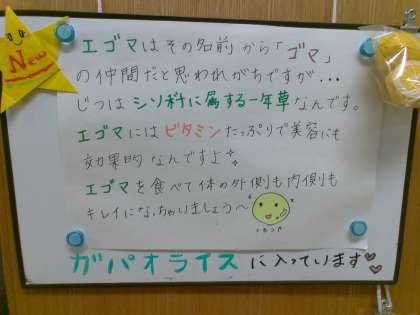 New
エゴマはその名前から「ゴマ」
の仲間だと思われがちですが...
じつはシソ科に属する一年草なんです。
エゴマにはビタミンたっぷりで美容にも
効果的なんですよ
エゴマを食べて体の外側も内側も
キレイになっちゃいましょう～
ガパオライスに入っています